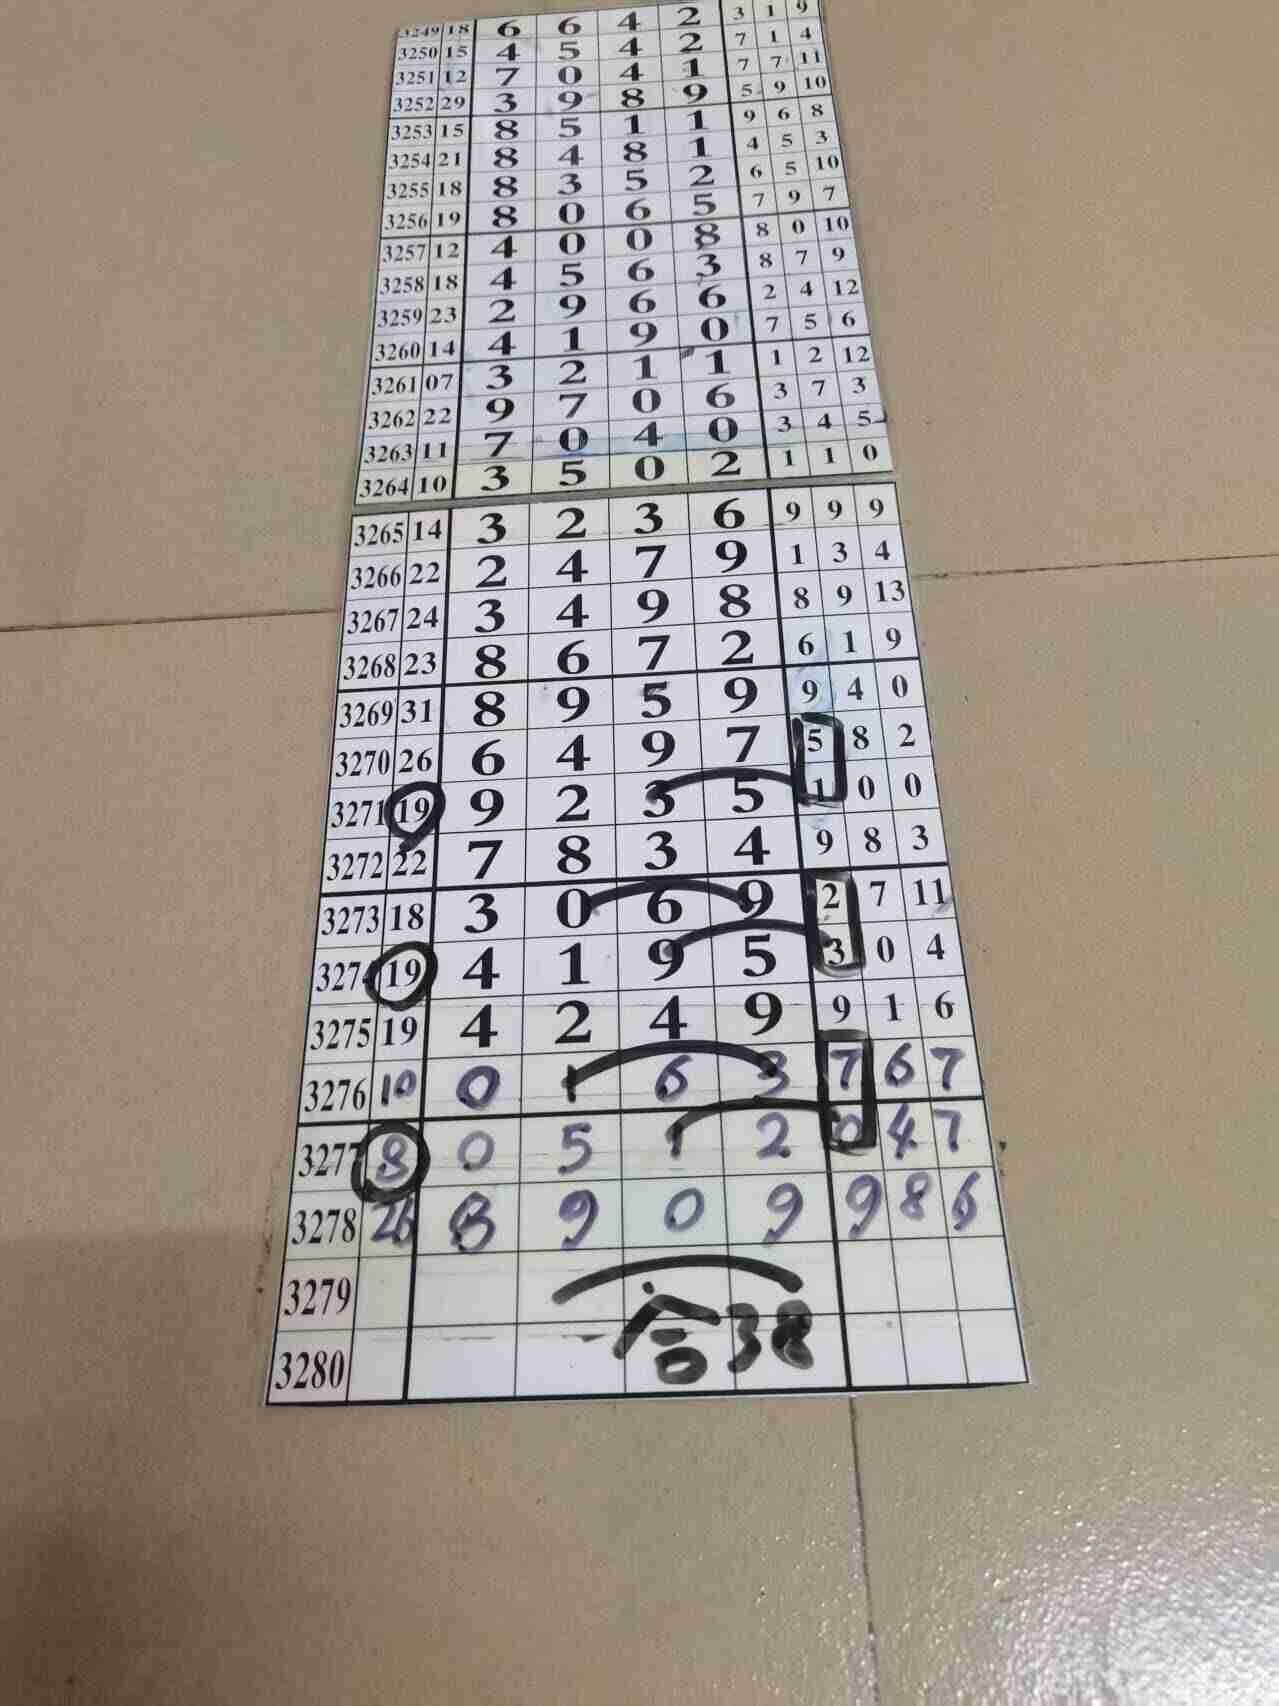 3249 18 6 6 4 2 3 1 9
3250 15 4 5 4 2 7 1 4
3251 12 7 0 4 1 7 7 11
3252 29 3 9 8 9 5 9 10
3253 15 8 5 1 1 9 6 8
3254 21 8 4 8 1 4 5 3
3255 18 8 3 5 2 6 5 10
3256 19 8 0 6 5 7 9 7
3257 12 4 0 0 8 8 0 10
3258 18 4 5 6 3 8 7 9
3259 23 2 9 6 6 2 4 12
3260 14 4 1 9 0 7 5 6
3261 07 3 2 1 1 1 2 12
3262 22 9 7 0 6 3 7 3
3263 11 7 0 4 0 3 4 5
3264 10 3 5 0 2 1 1 0
3265 14 3 2 3 6 9 9 9
3266 22 2 4 7 9 1 3 4
3267 24 3 4 9 8 8 9 13
3268 23 8 6 7 2 6 1 9
3269 31 8 9 5 9 9 4 0
3270 26 6 4 9 7 5 8 2
3271 19 9 2 3 5 1 0 0
3272 22 7 8 3 4 9 8 3
3273 18 3 0 6 9 2 7 11
3274 19 4 1 9 5 3 0 4
3275 19 4 2 4 9 9 1 6
3276 10 0 1 6 3 7 6 7
3277 8 0 5 1 2 0 4 7
3278 26 8 9 0 9 9 8 6
3279
合38
3280